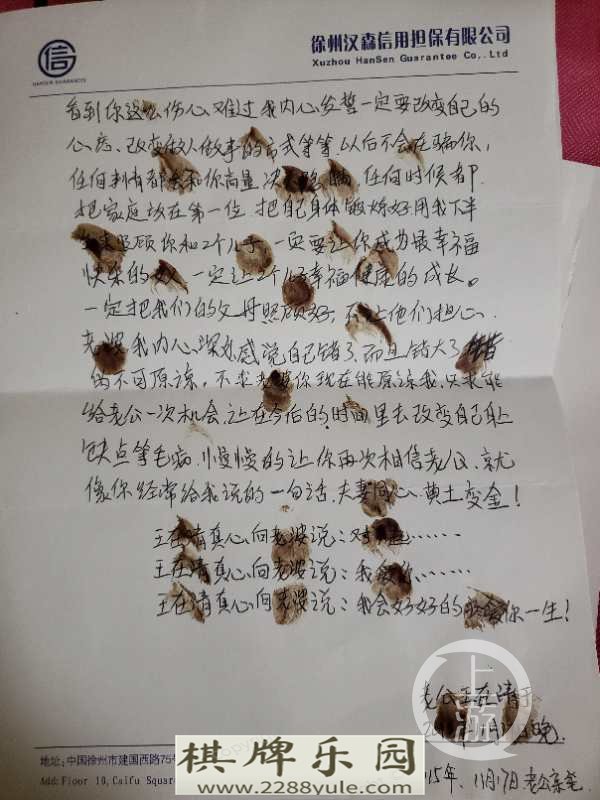 信
HANSEN GUARANTEE
徐州汉森信用担保有限公司
Xuzhou HanSen Guarantee Co,.Ltd
看到你这么伤心难过我内心发誓一定要改变自己的
心态、改变做人做事的方式等等.以后不会在骗你,
任何事情都会和你商量 决 瞒 任何时候都
把家庭放在第一位 把自己身体锻炼好用我下半
照顾你和2个儿子 一定要让你成为最幸福
快乐的女人 一定让2个儿子幸福健康的成长。
一定把我们的父母照顾好,不让他们担心.
老婆 我内心深处感觉自己错了而且错大了
的不可原谅,不求老婆你现在能原谅我,只求能
给老公一次机会,让在今后的时间里去改变自己身上
缺点等毛病,慢慢的让你再次相信老公,就
像你经常给我说的一句话.夫妻同心、黄土变金!
王在清真心向老婆说:对不起……
王在清真心向老婆说:我爱你……
王在清真心向老婆说:我会好好的 爱你一生!
老公王在清于
2 月 晚.
15年、11月17日 老公亲笔
地址:中国徐州市建国西路75号
Add: Floor 19, Caifu Square
上游
棋牌乐园
www.2288yule.com